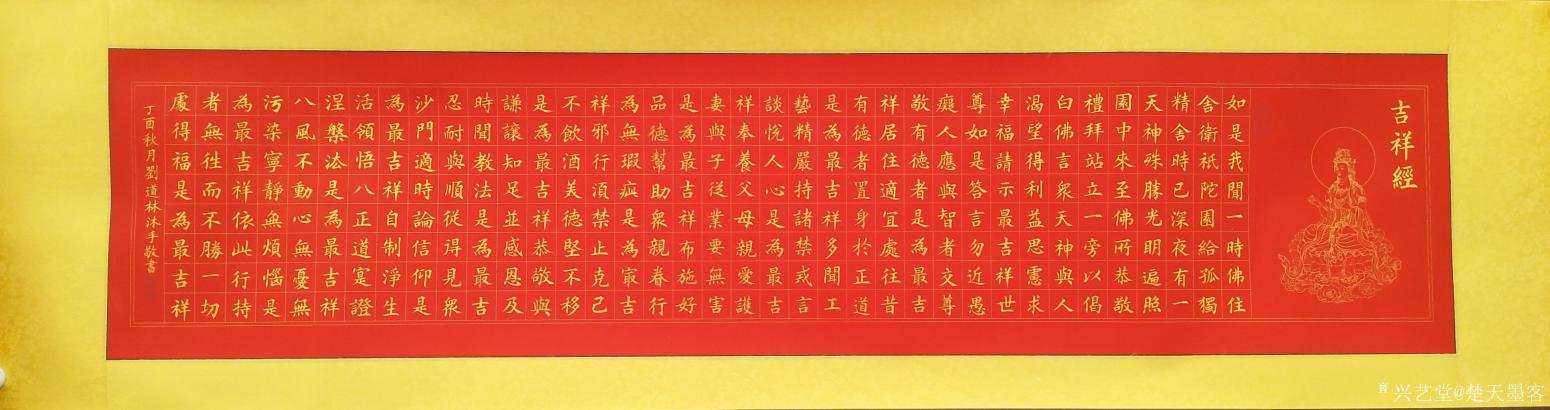 吉祥經
如是我聞一時佛住
舍衛祇陀園給孤獨
精舍時已深夜有一
天神殊勝光明遍照
園中來至佛所恭敬
禮拜站立一旁以偈
白佛言眾天神與人
渴望得利益思慮求
幸福請示最吉祥世
尊如是答言勿近愚
癡人應與智者交尊
敬有德者是為最吉
祥居住適宜處往昔
有德者置身於正道
是為最吉祥多聞工
藝精嚴持諸禁戒言
談悅人心是為最吉
祥奉養父母親愛護
妻與子從業要無害
是為最吉祥布施好
品德幫助眾親眷行
為無瑕疵是為最吉
祥邪行須禁止克己
不飲酒美德堅不移
是為最吉祥恭敬與
謙讓知足並感恩及
時聞教法是為最吉
忍耐與順從得見眾
沙門適時論信仰是
為最吉祥自制淨生
活領悟八正道寔證
涅槃法是為最吉祥
八風不動心無憂無
污染寧靜無煩惱是
為最吉祥依此行持
者無往而不勝一切
處得福是為最吉祥
丁酉秋月劉道林沐手敬書
兴艺堂@楚天墨客